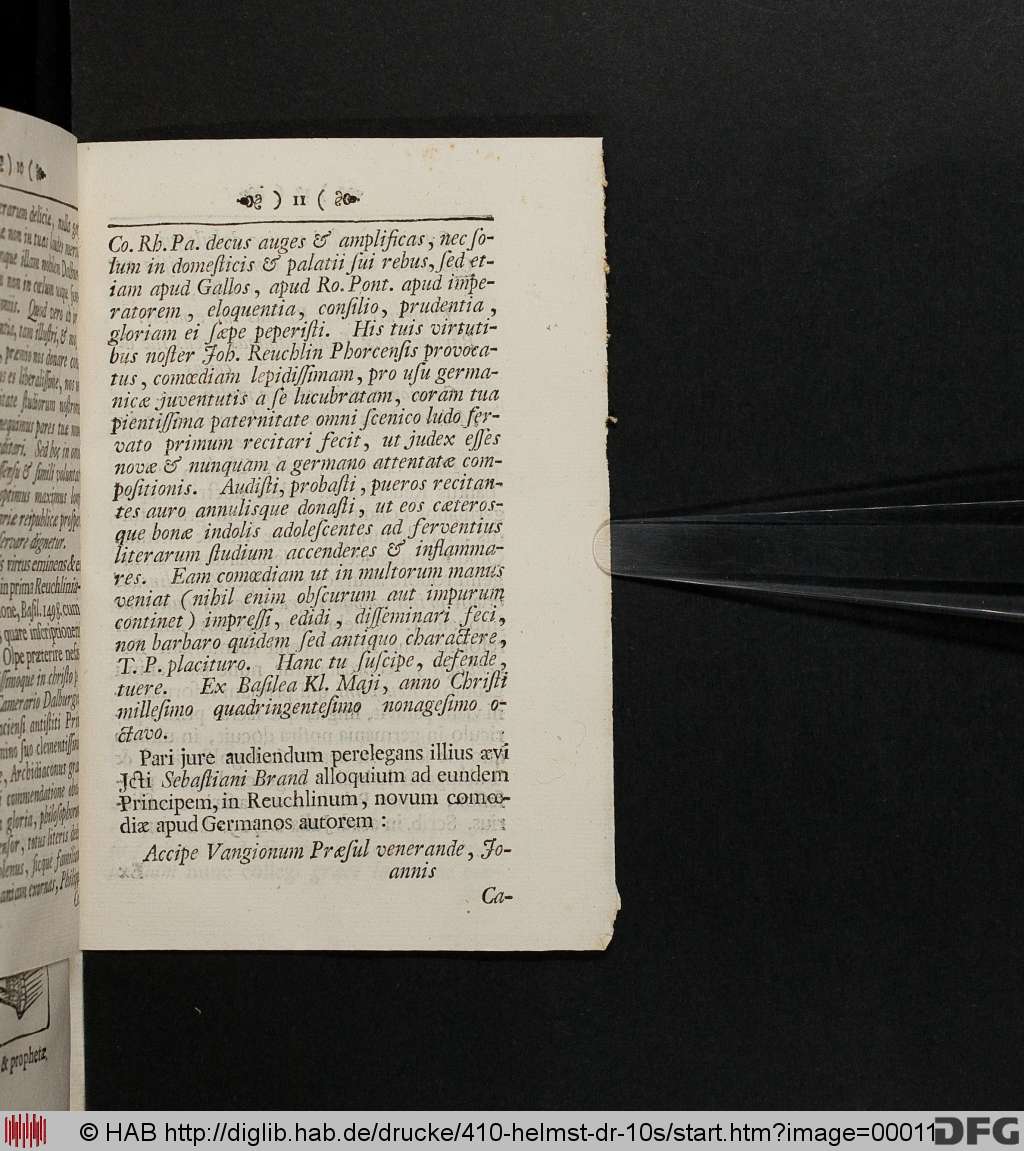 ) 11 (
Co. Rh. Pa. decus auges & amplificas, nec ſo-
lum in domeſticis & palatii ſui rebus, ſed et-
iam apud Gallos, apud Ro. Pont. apud impe-
ratorem, eloquentia, conſilio, prudentia,
gloriam ei ſæpe peperiſti. His tuis virtuti-
bus noſter Joh. Reuchlin Phorcenſis provoca-
tus, comœdiam lepidiſſimam, pro uſu germa-
nicæ juventutis a ſe lucubratam, coram tua
pientiſſima paternitate omni ſcenico ludo ſer-
vato primum recitari fecit, ut judex eſſes
novæ & nunquam a germano attentatæ com-
poſitionis. Audiſti, probaſti, pueros recitan-
tes auro annulisque donaſti, ut eos cæteros-
que bonæ indolis adoleſcentes ad ferventius
literarum ſtudium accenderes & inflamma-
res. Eam comœdiam ut in multorum manus
veniat (nihil enim obſcurum aut impurum
continet) impreſſi, edidi, diſſeminari feci,
non barbaro quidem ſed antiquo charactere,
T. P. placituro. Hanc tu ſuſcipe, defende,
tuere. Ex Baſilea Kl. Maji, anno Chriſti
milleſimo quadringenteſimo nonageſimo o-
ctavo.
Pari jure audiendum perelegans illius ævi
Jcti Sebaſtiani Brand alloquium ad eundem
Principem, in Reuchlinum, novum comœ-
diæ apud Germanos autorem:
Accipe Vangionum Præſul venerande, Jo-
annis
Ca-
) 10 (
& prophetæ,
© HAB http://diglib.hab.de/drucke/410-helmst-dr-10s/start.htm?image=00011
DFG